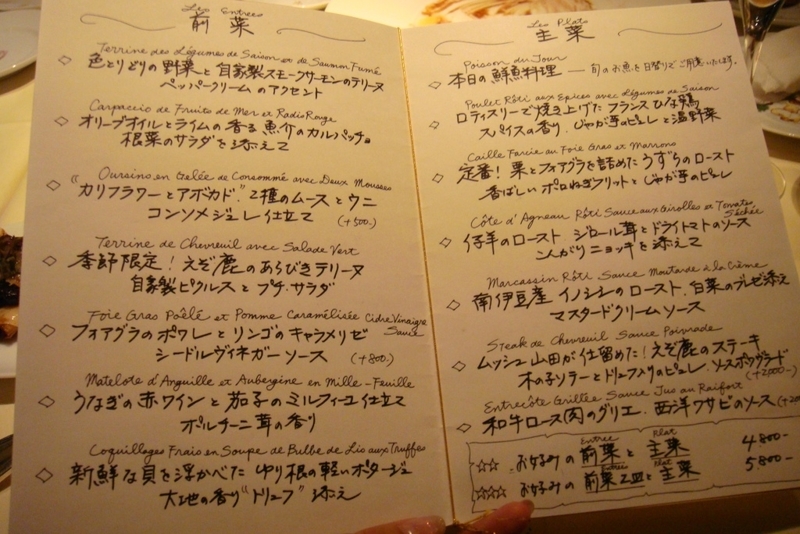 Les Entrees
前菜
Terrine des Légumes de Saison et de Saumon Fumé
色とりどりの野菜と自家製スモークサーモンのテリーヌ
ペッパークリームのアクセント
Carpaccio de Fruits de Mer et Radis Rouge
オリーブオイルとライムの香る魚介のカルパッチョ
根菜のサラダを添えて
Oursins en Gelée de Consommé avec Deux Mousses
"カリフラワーとアボカド"2種のムースとウニ
コンソメジュレ仕立て (+500.)
Terrine de Chevreuil avec Salade Vert
季節限定!えぞ鹿のあらびきテリーヌ
自家製ピクルスとプチ・サラダ
Foie Gras Poêlé et Pomme Caramélisée Cidre Vinaigre Sauce
フォアグラのポワレとリンゴのキャラメリゼ
シードルヴィネガーソース (+800.)
Matelote d'Anguille et Aubergine en Mille-Feuille
うなぎの赤ワインと茄子のミルフィーユ仕立て
ポルチーニ茸の香り
Coquillages Frais en Soupe de Bulbe de Lis aux Truffes
新鮮な貝を浮かべた ゆり根の軽いポタージュ
大地の香り"トリュフ"添え
Les Plats
主菜
Poisson du Jour
本日の鮮魚料理 — 旬のお魚を日替りでご用意いたします。
Poulet Rôti aux Epices avec Légumes de Saison
ロティスリーで焼き上げたフランスひな鶏
スパイスの香り、じゃが芋のピューレと温野菜
Caille Farcie au Foie Gras et Marrons
定番!栗とフォアグラを詰めたうずらのロースト
香ばしいポロねぎフリットとじゃが芋のピューレ
Côte d'Agneau Rôti Sauce aux Girolles et Tomates Séchée
仔羊のロースト ジロール茸とドライトマトのソース
ニョッキを添えて
Marcassin Rôti Sauce Moutarde à la Crème
南伊豆産イノシシのロースト、白菜のブレゼ添え
マスタードクリームソース
Steak de Chevreuil Sauce Poivrade
ムッシュ山田が仕留めた!えぞ鹿のステーキ
木の子ソテーとトリュフ入りのピューレ、ソースポワヴラード
(+2,000-)
Entrecôte Grillée Sauce Jus au Raifort
和牛ロース肉のグリエ、西洋ワサビのソース (+20
☆☆ お好みの 前菜 Entree と 主菜 Plat 4.800-
☆☆☆ お好みの 前菜2皿 Entree と 主菜 Plat 5.800-